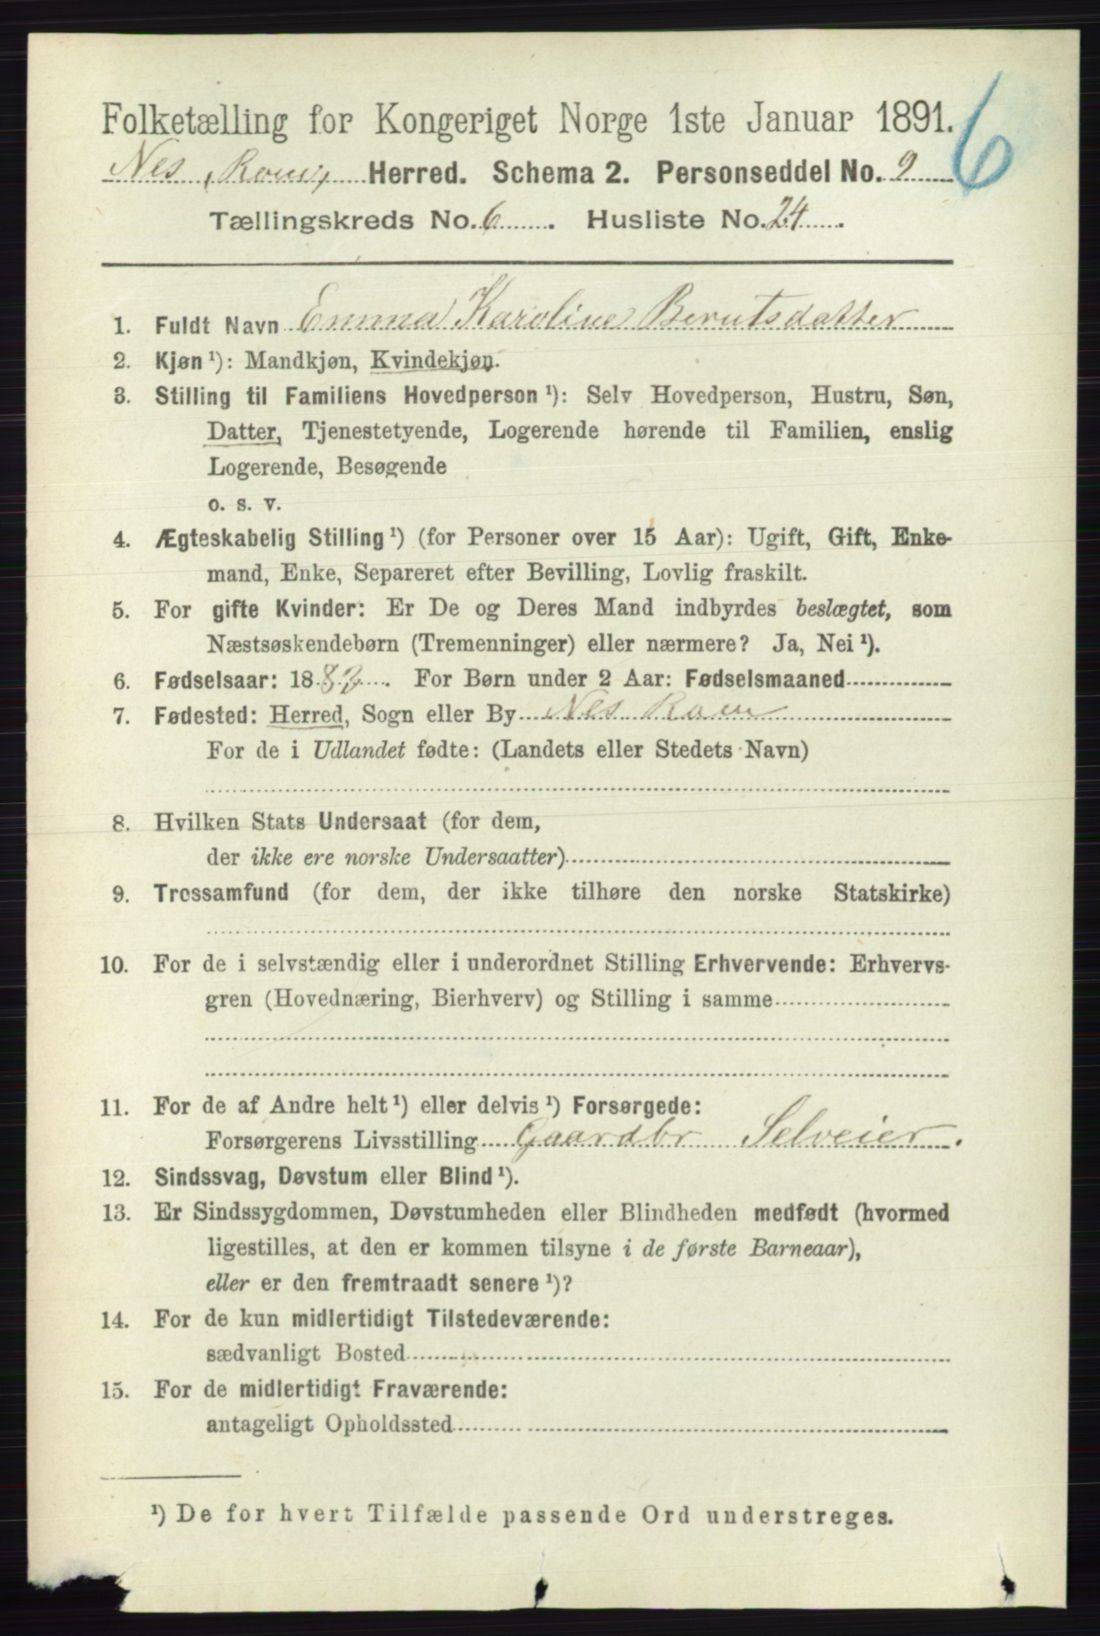 6
Folketælling for Kongeriget Norge 1ste Januar 1891.
Nes, Rom, Herred. Schema 2. Personseddel No. 9
Tællingskreds No. 6. Husliste No. 24.
1. Fuldt Navn Emma Karoline Berntsdatter
2. Kjøn ¹): Mandkjøn, Kvindekjøn.
3. Stilling til Familiens Hovedperson ¹): Selv Hovedperson, Hustru, Søn,
Datter, Tjenestetyende, Logerende hørende til Familien, enslig
Logerende, Besøgende
o. s. v.
4. Ægteskabelig Stilling ¹) (for Personer over 15 Aar): Ugift, Gift, Enke-
mand, Enke, Separeret efter Bevilling, Lovlig fraskilt.
5. For gifte Kvinder: Er De og Deres Mand indbyrdes beslægtet, som
Næstsøskendebørn (Tremenninger) eller nærmere? Ja, Nei ¹).
6. Fødselsaar: 1882. For Børn under 2 Aar: Fødselsmaaned
7. Fødested: Herred, Sogn eller By Nes Rom
For de i Udlandet fødte: (Landets eller Stedets Navn)
8. Hvilken Stats Undersaat (for dem,
der ikke ere norske Undersaatter)
9. Trossamfund (for dem, der ikke tilhøre den norske Statskirke)
10. For de i selvstændig eller i underordnet Stilling Erhvervende: Erhvervs-
gren (Hovednæring, Bierhverv) og Stilling i samme
11. For de af Andre helt ¹) eller delvis ¹) Forsørgede:
Forsørgerens Livsstilling Gaardbr Selveier.
12. Sindssvag, Døvstum eller Blind ¹).
13. Er Sindssygdommen, Døvstumheden eller Blindheden medfødt (hvormed
ligestilles, at den er kommen tilsyne i de første Barneaar),
eller er den fremtraadt senere ¹)?
14. For de kun midlertidigt Tilstedeværende:
sædvanligt Bosted
15. For de midlertidigt Fraværende:
antageligt Opholdssted
¹) De for hvert Tilfælde passende Ord understreges.